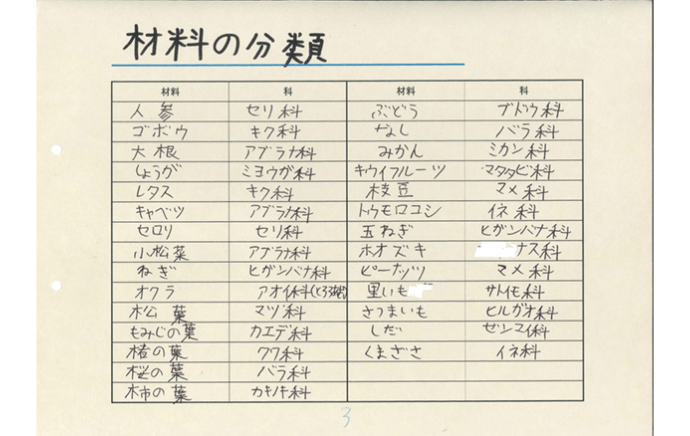 材料の分類
材料 科 材料 科
人参 セリ科 ぶどう ブドウ科
ゴボウ キク科 なし バラ科
大根 アブラナ科 みかん ミカン科
しょうが ミョウガ科 キウイフルーツ マタタビ科
レタス キク科 枝豆 マメ科
キャベツ アブラナ科 トウモロコシ イネ科
セロリ セリ科 玉ねぎ ヒガンバナ科
小松菜 アブラナ科 ホオズキ ナス科
ねぎ ヒガンバナ科 ピーナッツ マメ科
オクラ アオイ科 里いも サトイモ科
松葉 マツ科 さつまいも ヒルガオ科
もみじの葉 カエデ科 しだ ゼンマイ科
の葉 クワ科 くまざさ イネ科
桜の葉 バラ科
柿の葉 カキノキ科
3